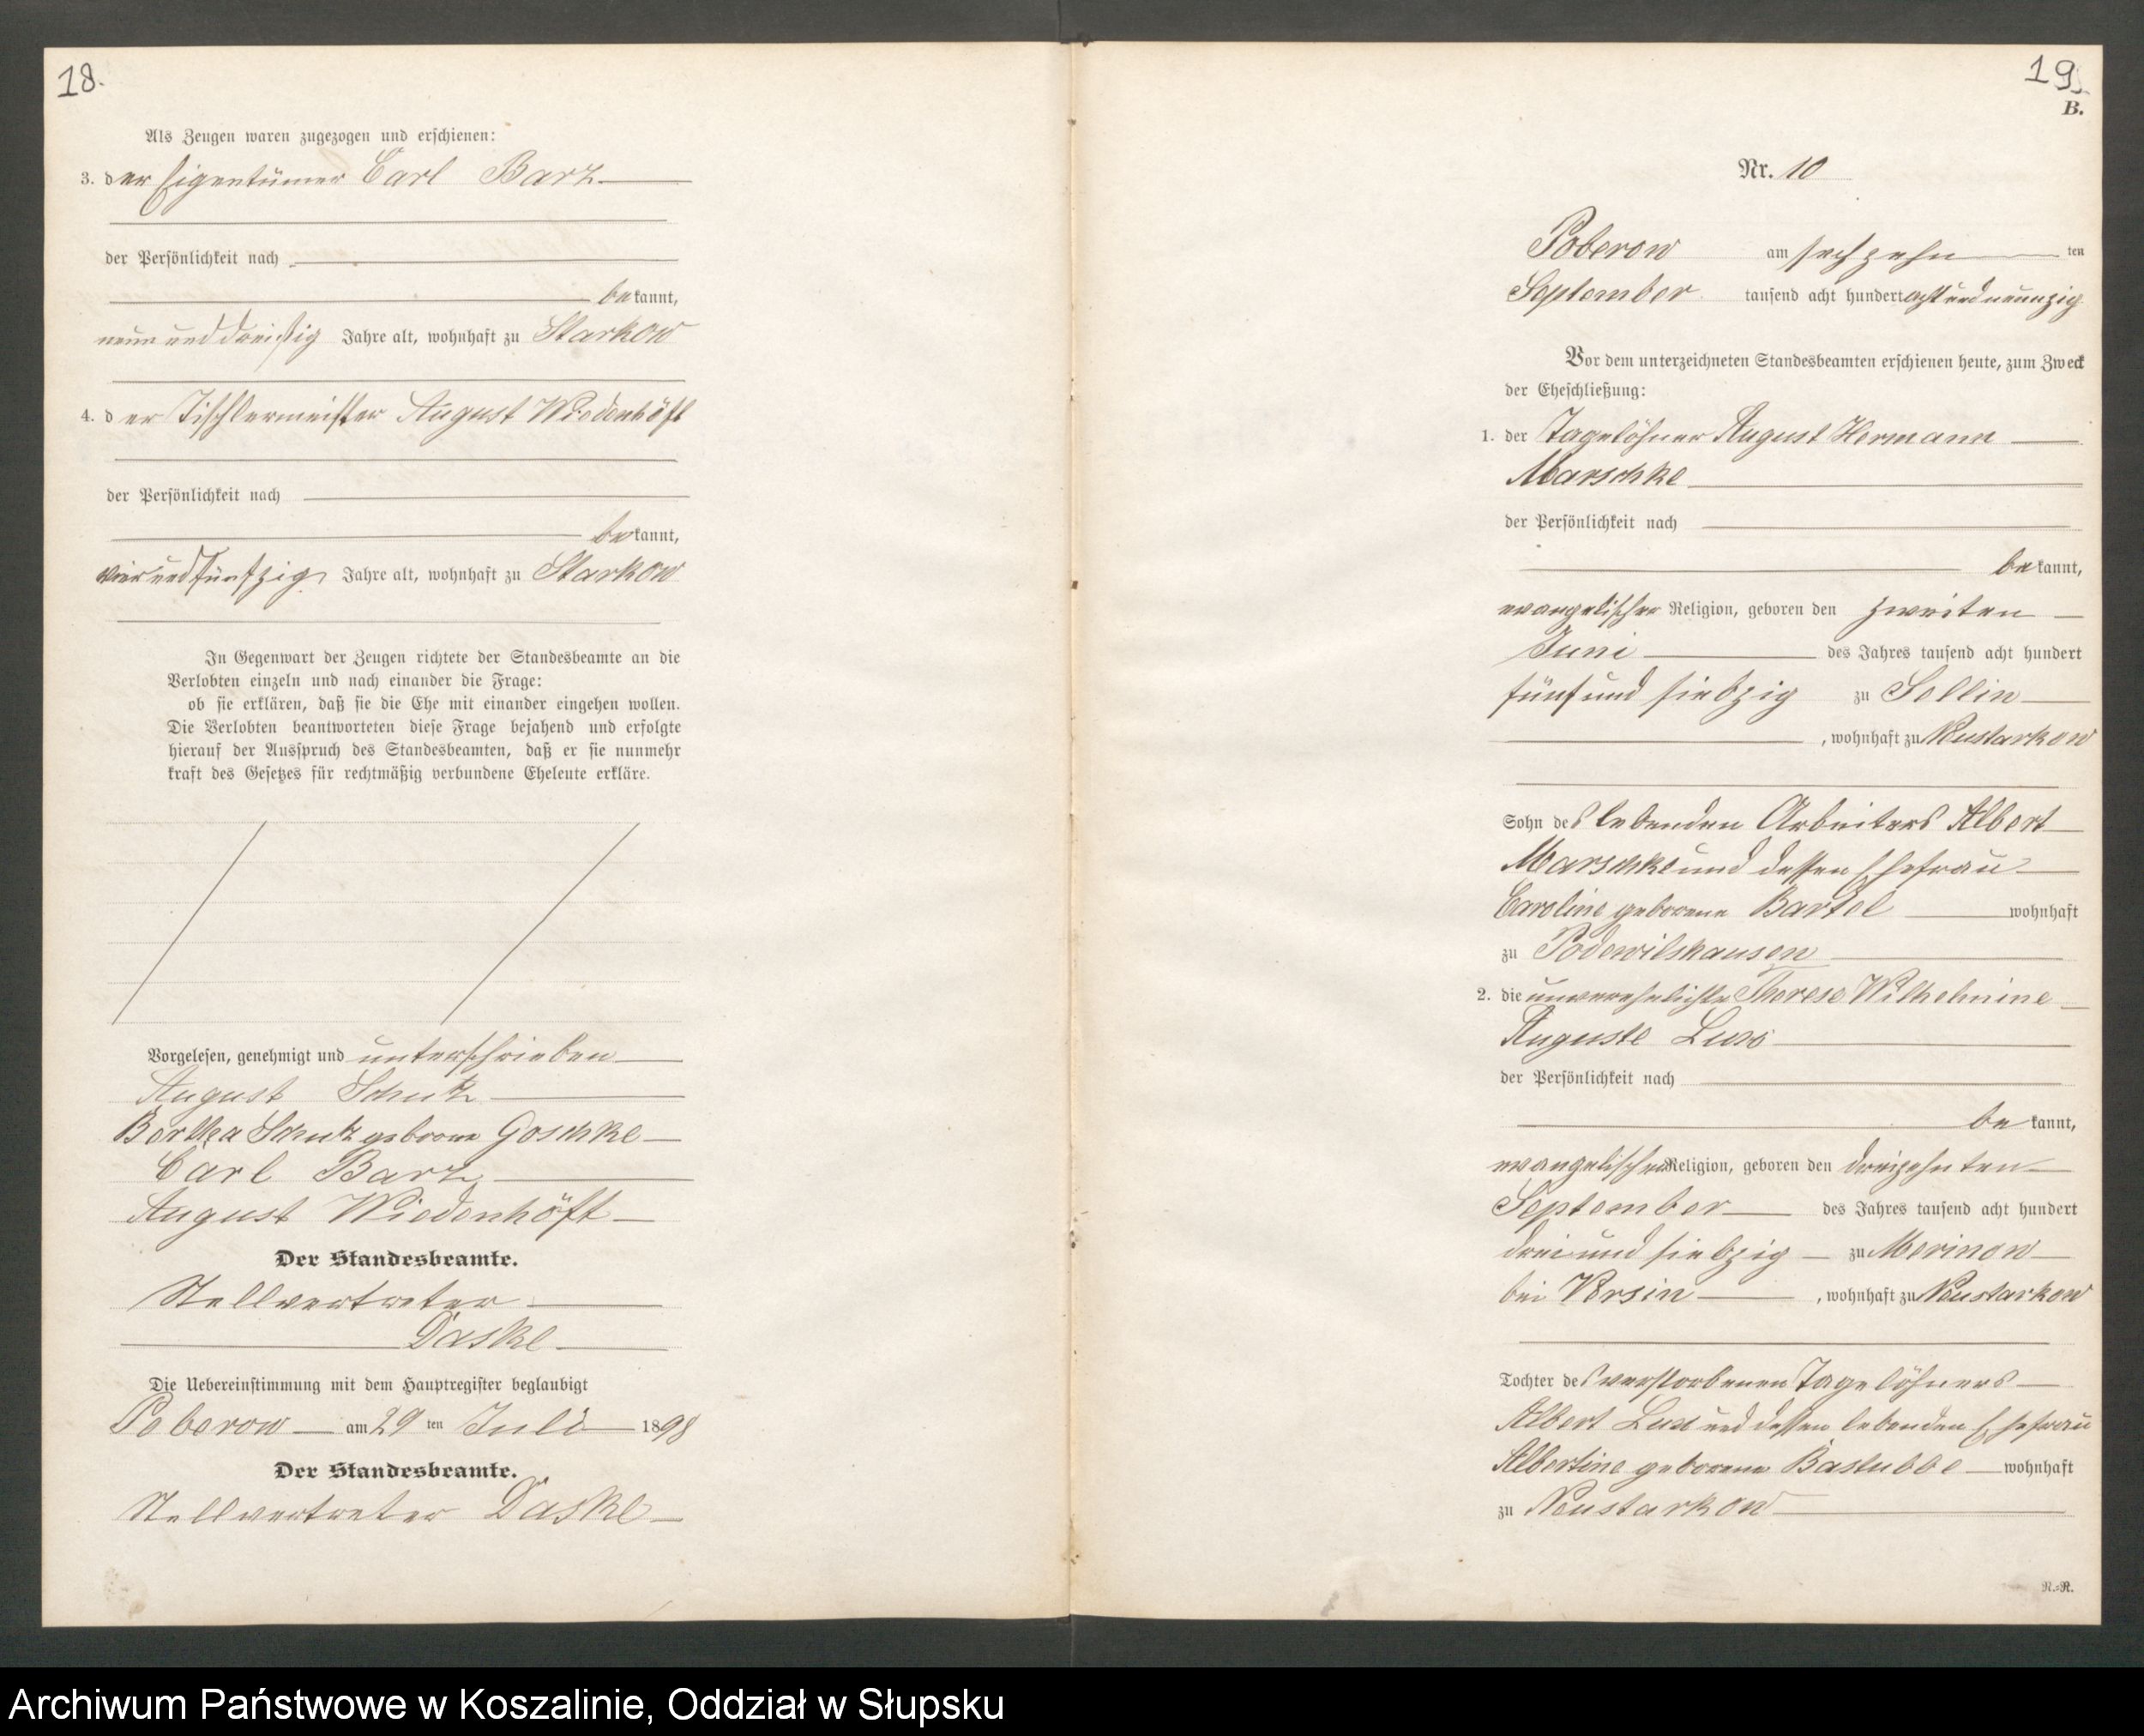 18.
Als Zeugen waren zugezogen und erschienen:
3. der Eigentümer Carl Barz
der Persönlichkeit nach
bekannt,
neun und dreißig Jahre alt, wohnhaft zu Starkow
4. der Tischlermeister August Wiedenhöft
der Persönlichkeit nach
bekannt,
vier und fünfzig Jahre alt, wohnhaft zu Starkow
In Gegenwart der Zeugen richtete der Standesbeamte an die
Verlobten einzeln und nach einander die Frage:
ob sie erklären, daß sie die Ehe mit einander eingehen wollen.
Die Verlobten beantworteten diese Frage bejahend und erfolgte
hierauf der Ausspruch des Standesbeamten, daß er sie nunmehr
kraft des Gesetzes für rechtmäßig verbundene Eheleute erkläre.
Vorgelesen, genehmigt und unterschrieben
August Schutz
Bertha Schutz geborene Goschke
Carl Barz
August Wiedenhöft
Der Standesbeamte.
Stellvertreter
Daske
Die Uebereinstimmung mit dem Hauptregister beglaubigt
Poberow am 29 ten Juli 1898
Der Standesbeamte.
Stellvertreter Daske
19.
B.
Nr. 10
Poberow am sechzehn ten
September tausend acht hundert acht und neunzig
Vor dem unterzeichneten Standesbeamten erschienen heute, zum Zweck
der Eheschließung:
1. der Tagelöhner August Hermann
Marschke
der Persönlichkeit nach
bekannt,
evangelischer Religion, geboren den zweiten
Juni des Jahres tausend acht hundert
fünf und siebzig zu Sellin
, wohnhaft zu Neustarkow
Sohn des lebenden Arbeiters Albert
Marschke und dessen Ehefrau
Caroline geborene Bartel wohnhaft
zu Podewilshausen
2. die unverehelichte Therese Wilhelmine
Auguste Lux
der Persönlichkeit nach
bekannt,
evangelischer Religion, geboren den dreizehnten
September des Jahres tausend acht hundert
drei und siebzig zu
bei Versin , wohnhaft zu Neustarkow
Tochter des verstorbenen Tagelöhners
Albert Lux und dessen lebenden Ehefrau
Albertine geborene Bastubbe wohnhaft
zu Neustarkow
N.=R.
Archiwum Państwowe w Koszalinie, Oddział w Słupsku